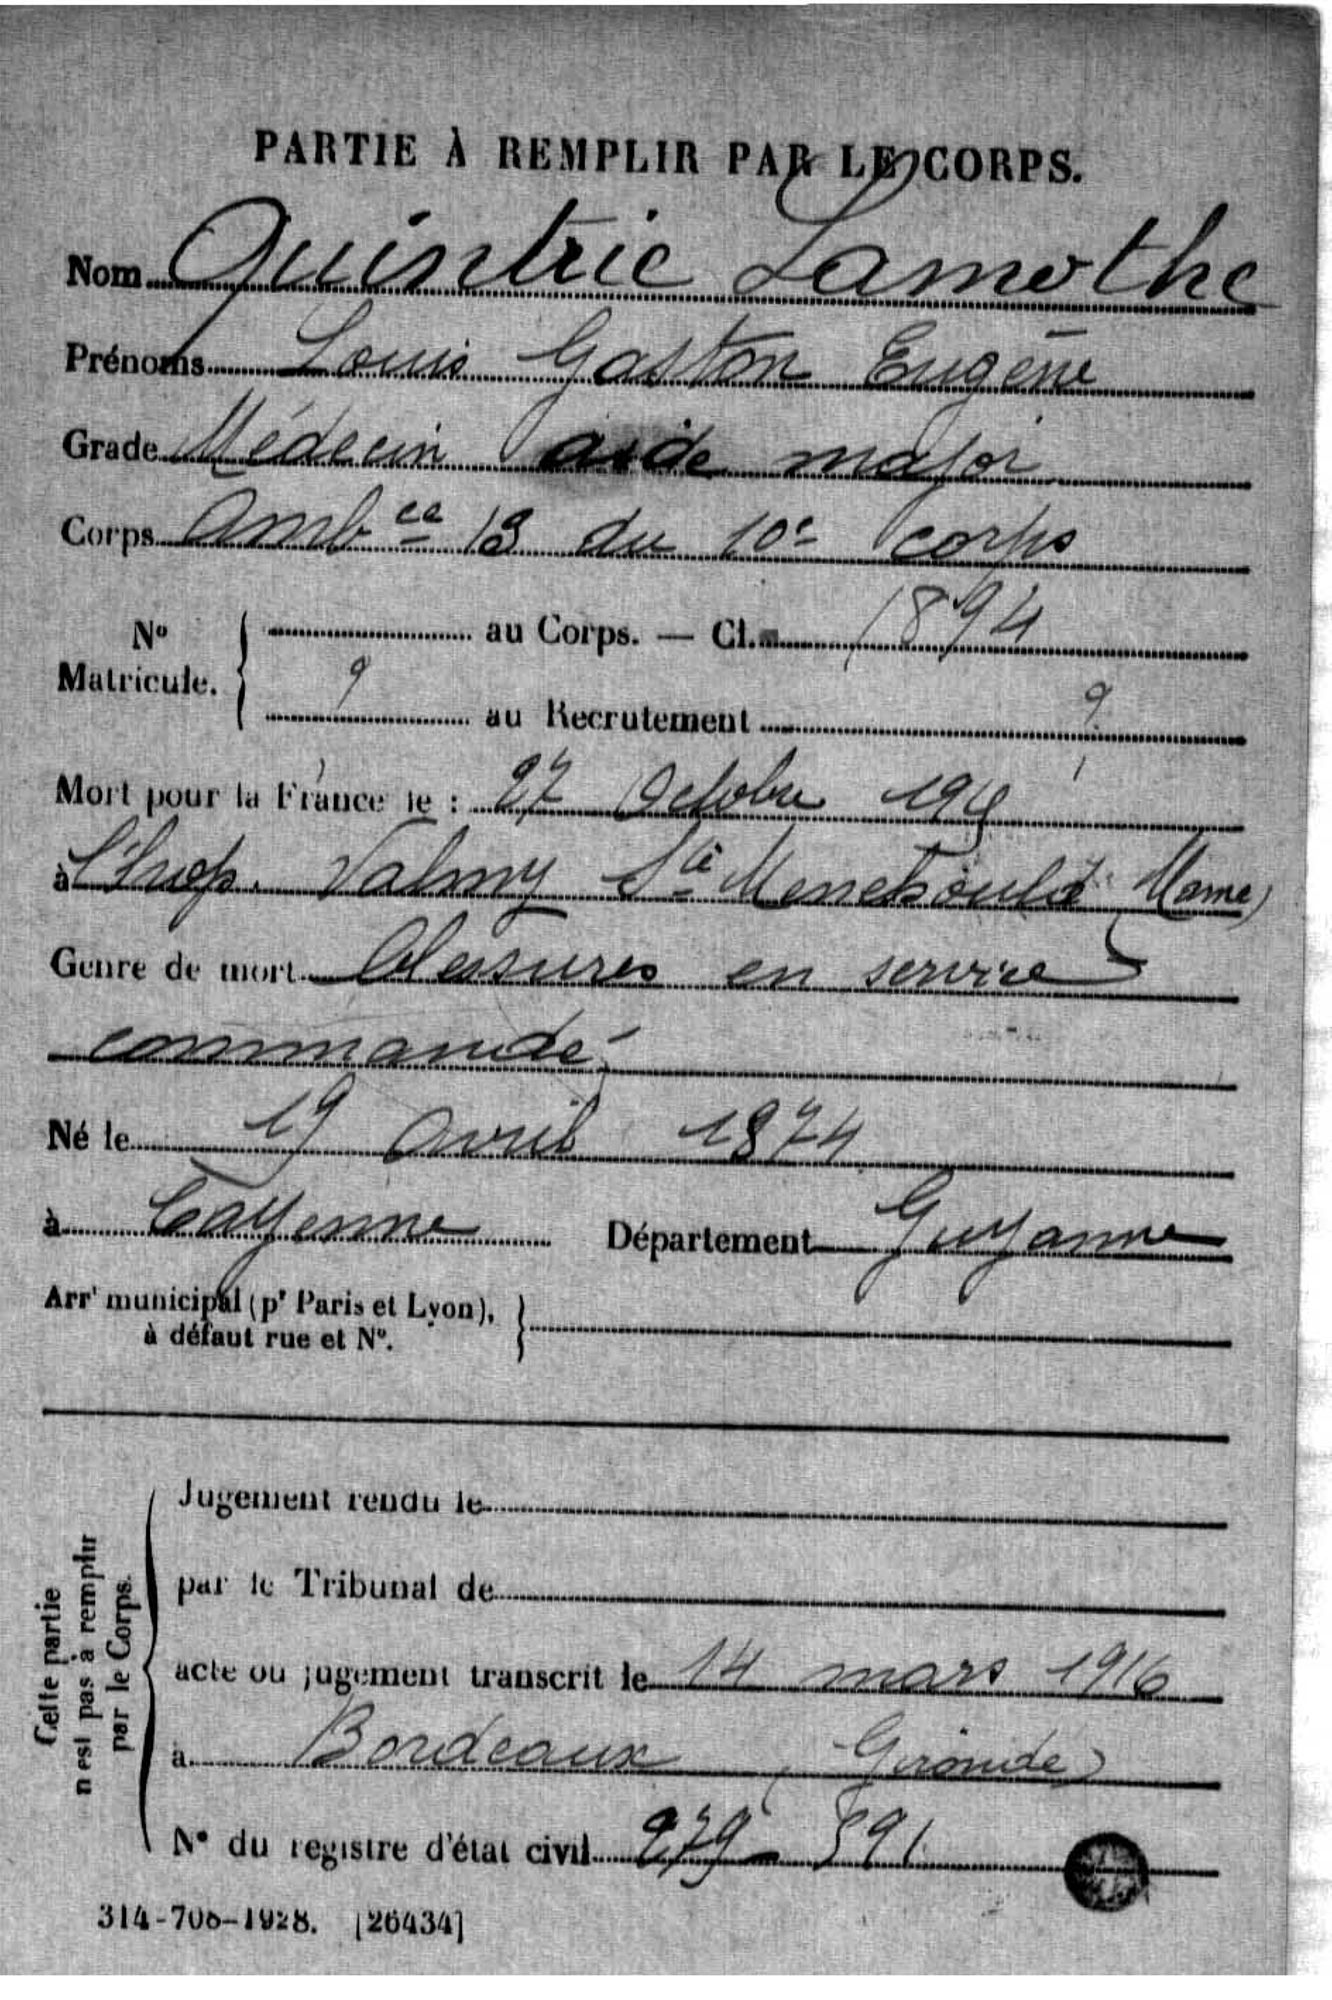 PARTIE À REMPLIR PAR LE CORPS.
Nom Quintric Lamothe
Prénoms Louis Gaston Eugène
Grade Médecin aide major
Corps Amb ce 13 du 10e corps
No Matricule. { au Corps. — Cl. 1894
? au Recrutement ?
Mort pour la France le : 27 Octobre 1915
à l'hop. Valmy Ste Menehould (Marne)
Genre de mort blessures en service
commandé
Né le 19 avril 1874
à Cayenne Département Guyanne
Arrt municipal (pr Paris et Lyon),
à défaut rue et No.
Cette partie
n'est pas à remplir
par le Corps.
Jugement rendu le
par le Tribunal de
acte ou jugement transcrit le 14 mars 1916
à Bordeaux (Gironde)
No du registre d'état civil 279 - 591
314-708-1928. [26434]